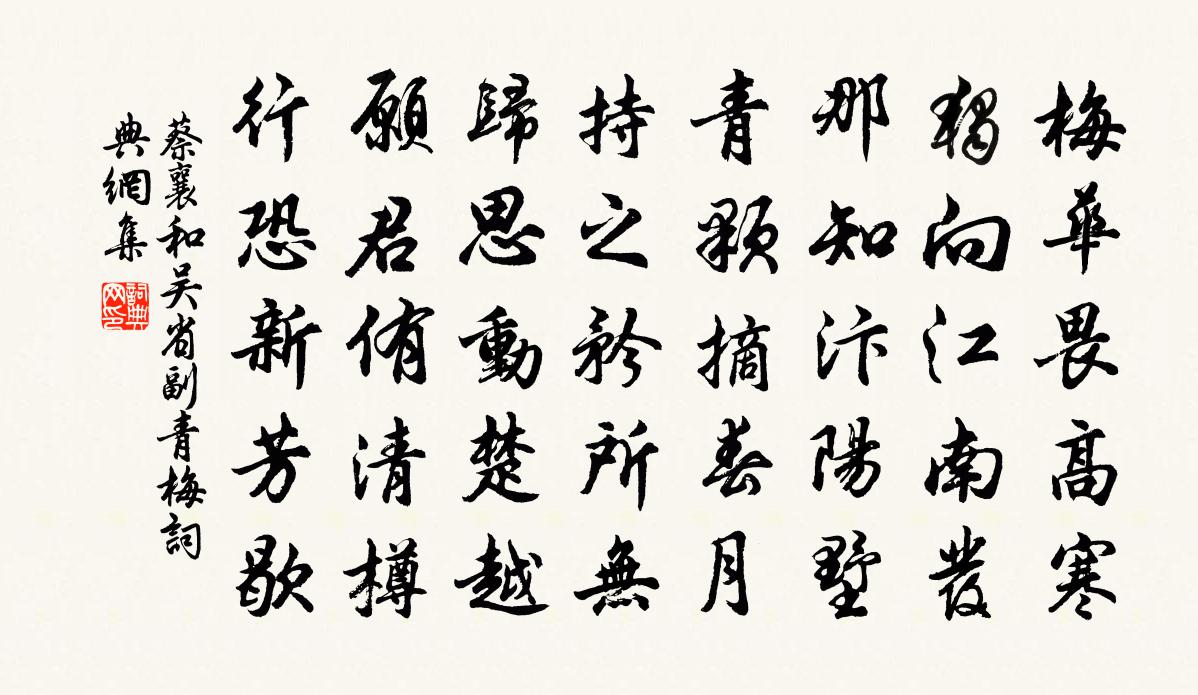 梅華畏高寒
獨向江南發
那知汴陽墅
青顆摘春月
持之矜所無
歸思動楚越
願君侑清樽
行恐新芳歇
蔡襄和吴省副青梅詞
典網集
詞典网印